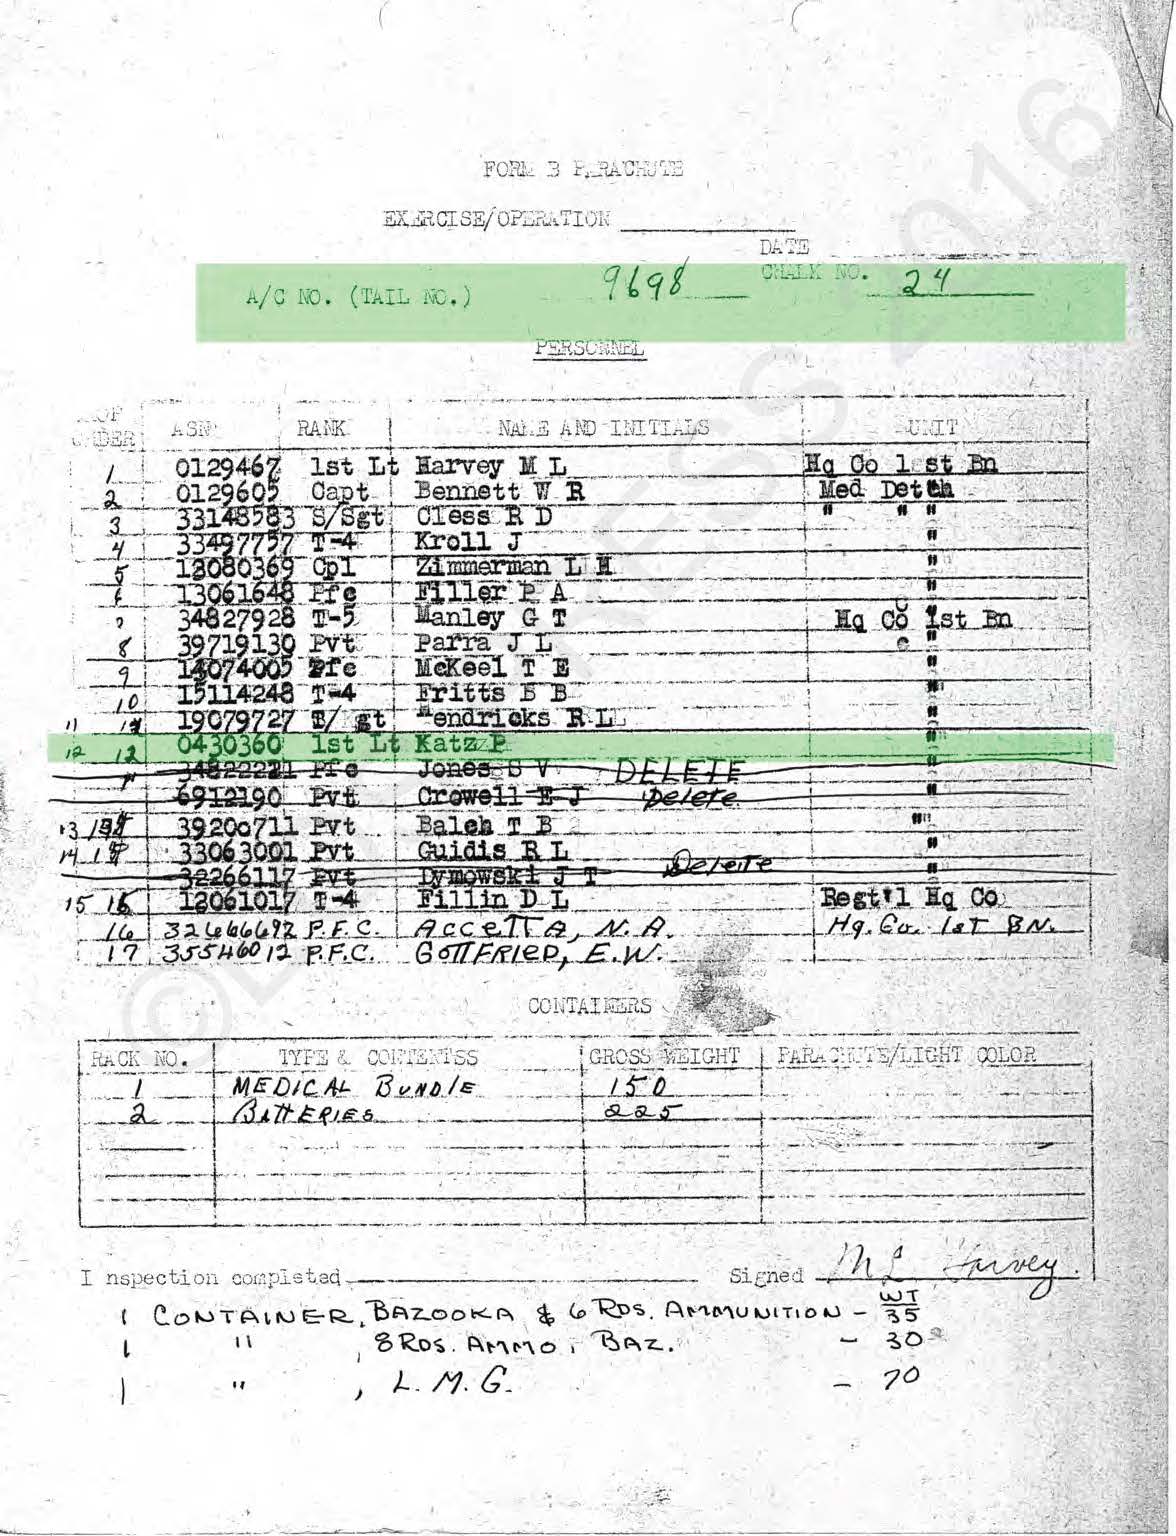 FORM B PARACHUTE
EXERCISE/OPERATION
DATE
A/C NO. (TAIL NO.) 9698 CHALK NO. 24
PERSONNEL
OF ORDER ASN RANK NAME AND INITIALS UNIT
1 0129467 1st Lt Harvey M L Hq Co 1st Bn
2 0129605 Capt Bennett W R Med Detch
3 33148583 S/Sgt Cless R D " " "
4 33497757 T-4 Kroll J "
5 13080369 Cpl Zimmerman L H "
6 13061648 Pfc Filler P A "
7 34827928 T-5 Manley G T Hq Co 1st Bn
8 39719130 Pvt Parra J L "
9 14074005 Pfc McKeel T E "
10 15114248 T-4 Fritts B B "
11 19079727 Hendricks R L "
12 12 0430360 1st Lt Katz P "
34822221 Pfc Jones S V DELETE "
6912190 Pvt Crowell E J Delete "
13 39200711 Pvt Balch T B "
14 33063001 Pvt Guidis R L "
32266117 Pvt Dymowski J T Delete "
15 16 12061017 T-4 Fillin D L Regt'l Hq Co
16 32666692 P.F.C. Accetta, N.A. Hq. Co. 1st BN.
17 35546012 P.F.C. GOTTFRIED, E.W.
CONTAINERS
RACK NO. TYPE & CONTENTSS GROSS WEIGHT PARACHUTE/LIGHT COLOR
1 MEDICAL BUNDLE 150
2 BATTERIES 225
I nspection completed Signed M L Harvey.
WT
1 CONTAINER, BAZOOKA & 6 RDS. AMMUNITION - 35
1 " , 8 RDS. AMMO, BAZ. - 30
1 " , L.M.G. - 70
2016